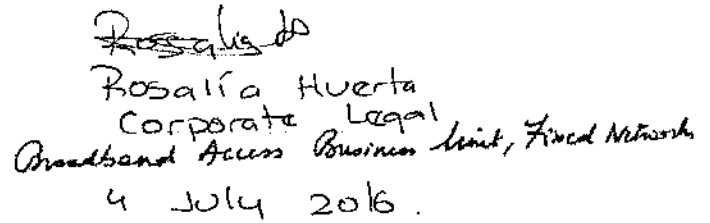 Rosalía
Rosalía Huerta
Corporate Legal
Broadband Access Business Unit, Fixed Networks
4 July 2016.